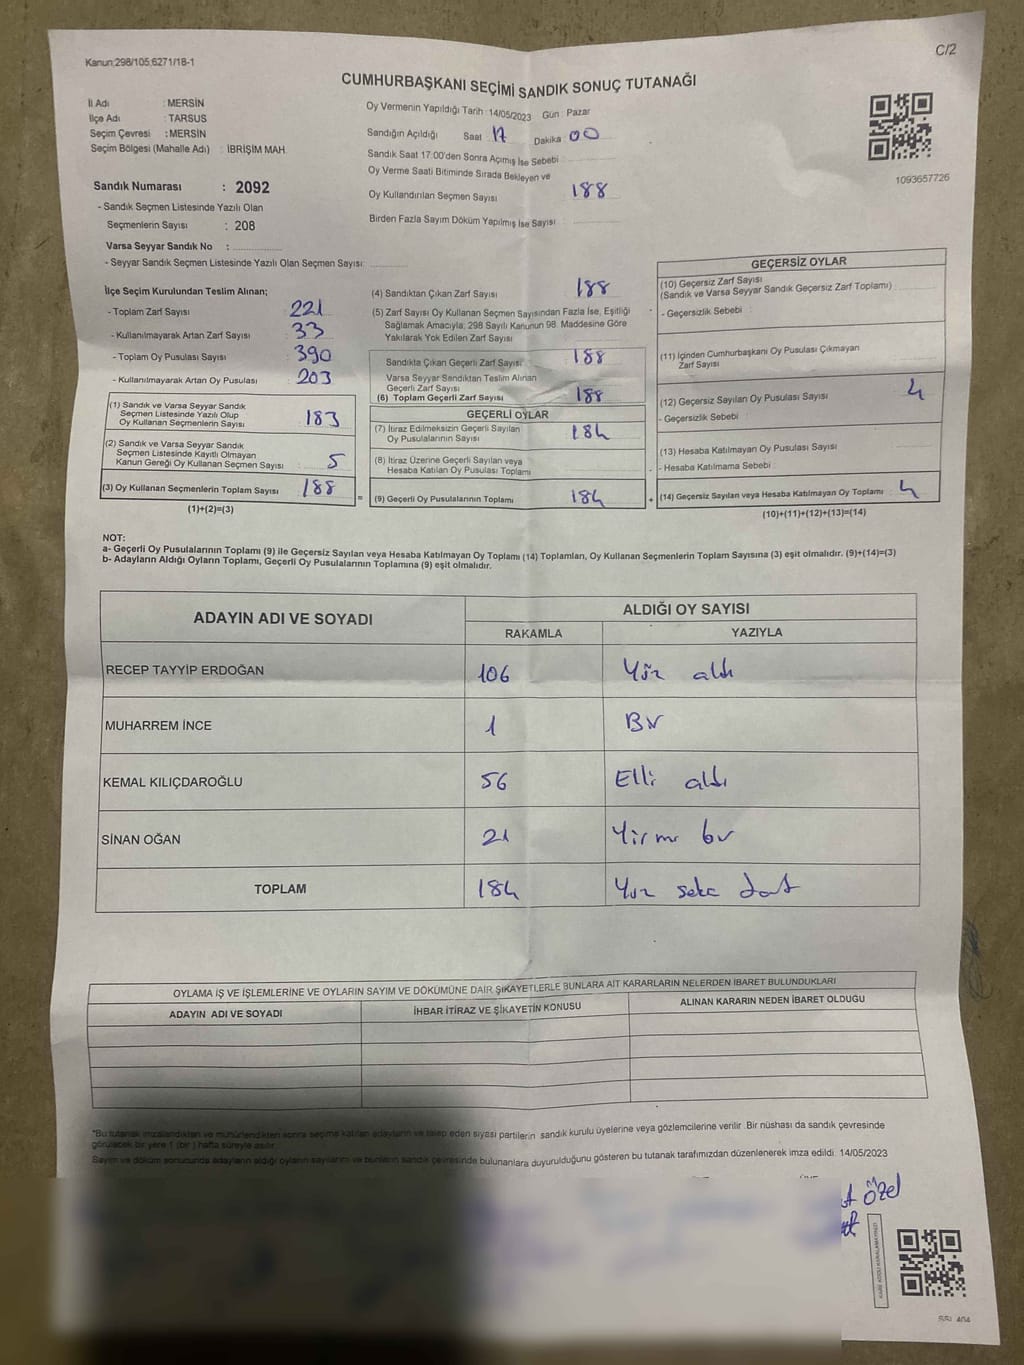 C/2
Kanun;298/105;6271/18-1
CUMHURBAŞKANI SEÇİMİ SANDIK SONUÇ TUTANAĞI
İl Adı : MERSİN
İlçe Adı : TARSUS
Seçim Çevresi : MERSİN
Seçim Bölgesi (Mahalle Adı) : İBRİŞİM MAH.
Sandık Numarası : 2092
- Sandık Seçmen Listesinde Yazılı Olan
Seçmenlerin Sayısı : 208
Varsa Seyyar Sandık No :
- Seyyar Sandık Seçmen Listesinde Yazılı Olan Seçmen Sayısı:
Oy Vermenin Yapıldığı Tarih :14/05/2023 Gün : Pazar
Sandığın Açıldığı Saat : 17 Dakika : 00
Sandık Saat 17:00'den Sonra Açımış İse Sebebi
Oy Verme Saati Bitiminde Sırada Bekleyen ve
Oy Kullandırılan Seçmen Sayısı 188
Birden Fazla Sayım Döküm Yapılmış İse Sayısı :
1093657726
İlçe Seçim Kurulundan Teslim Alınan;
- Toplam Zarf Sayısı : 221
- Kullanılmayarak Artan Zarf Sayısı : 33
- Toplam Oy Pusulası Sayısı : 390
- Kullanılmayarak Artan Oy Pusulası : 203
(1) Sandık ve Varsa Seyyar Sandık
Seçmen Listesinde Yazılı Olup
Oy Kullanan Seçmenlerin Sayısı : 183
(2) Sandık ve Varsa Seyyar Sandık
Seçmen Listesinde Kayıtlı Olmayan
Kanun Gereği Oy Kullanan Seçmen Sayısı : 5
(3) Oy Kullanan Seçmenlerin Toplam Sayısı : 188
(1)+(2)=(3)
=
(4) Sandıktan Çıkan Zarf Sayısı 188
(5) Zarf Sayısı Oy Kullanan Seçmen Sayısından Fazla İse, Eşitliği
Sağlamak Amacıyla; 298 Sayılı Kanunun 98. Maddesine Göre
Yakılarak Yok Edilen Zarf Sayısı
Sandıkta Çıkan Geçerli Zarf Sayısı : 188
Varsa Seyyar Sandıktan Teslim Alınan
Geçerli Zarf Sayısı
(6) Toplam Geçerli Zarf Sayısı 188
GEÇERLİ OYLAR
(7) İtiraz Edilmeksizin Geçerli Sayılan
Oy Pusulalarının Sayısı 184
(8) İtiraz Üzerine Geçerli Sayılan veya
Hesaba Katılan Oy Pusulası Toplamı
(9) Geçerli Oy Pusulalarının Toplamı 184
+
GEÇERSİZ OYLAR
(10) Geçersiz Zarf Sayısı
(Sandık ve Varsa Seyyar Sandık Geçersiz Zarf Toplamı) :
- Geçersizlik Sebebi :
(11) İçinden Cumhurbaşkanı Oy Pusulası Çıkmayan
Zarf Sayısı
(12) Geçersiz Sayılan Oy Pusulası Sayısı 4
- Geçersizlik Sebebi :
(13) Hesaba Katılmayan Oy Pusulası Sayısı
- Hesaba Katılmama Sebebi :
(14) Geçersiz Sayılan veya Hesaba Katılmayan Oy Toplamı : 4
(10)+(11)+(12)+(13)=(14)
NOT:
a- Geçerli Oy Pusulalarının Toplamı (9) ile Geçersiz Sayılan veya Hesaba Katılmayan Oy Toplamı (14) Toplamları, Oy Kullanan Seçmenlerin Toplam Sayısına (3) eşit olmalıdır. (9)+(14)=(3)
b- Adayların Aldığı Oyların Toplamı, Geçerli Oy Pusulalarının Toplamına (9) eşit olmalıdır.
ADAYIN ADI VE SOYADI ALDIĞI OY SAYISI
RAKAMLA YAZIYLA
RECEP TAYYİP ERDOĞAN 106 Yüz altı
MUHARREM İNCE 1 Bir
KEMAL KILIÇDAROĞLU 56 Elli altı
SİNAN OĞAN 21 Yirmi bir
TOPLAM 184 Yüz seksen dört
OYLAMA İŞ VE İŞLEMLERİNE VE OYLARIN SAYIM VE DÖKÜMÜNE DAİR ŞİKAYETLERLE BUNLARA AİT KARARLARIN NELERDEN İBARET BULUNDUKLARI
ADAYIN ADI VE SOYADI İHBAR İTİRAZ VE ŞİKAYETİN KONUSU ALINAN KARARIN NEDEN İBARET OLDUĞU
*Bu tutanak imzalandıktan ve mühürlendikten sonra seçime katılan adayların ve talep eden siyasi partilerin sandık kurulu üyelerine veya gözlemcilerine verilir. Bir nüshası da sandık çevresinde
görülecek bir yere 1 (bir) hafta süreyle asılır.
Sayım ve döküm sonucunda adayların aldığı oyların sayılarını ve bunların sandık çevresinde bulunanlara duyurulduğunu gösteren bu tutanak tarafımızdan düzenlenerek imza edildi. 14/05/2023
Özel